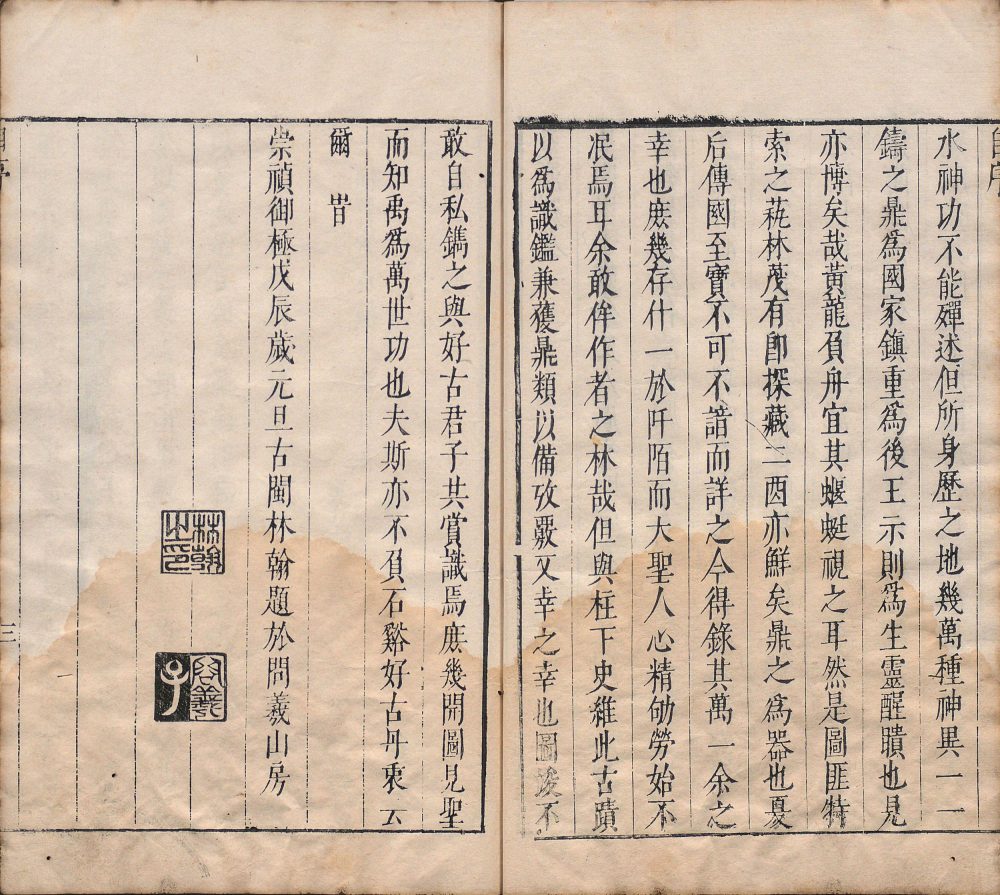 水神功不能殫述但所身歷之地幾萬種神異一一
鑄之鼎爲國家鎮重爲後王示則爲生靈醒聵也見
亦博矣哉黃龍負舟宜其蝘蜓視之耳然是圖匪特
索之萟林茂有卽探藏二酉亦鮮矣鼎之爲器也夏
后傳國至寶不可不諳而詳之今得錄其萬一余之
幸也庶幾存什一於阡陌而大聖人心精劬勞始不
泯焉耳余敢侔作者之林哉但與柱下史雜此古蹟
以爲識鑑兼獲鼎類以備攷覈又幸之幸也圖竣不
敢自私鐫之與好古君子共賞識焉庶幾開圖見聖
而知禹爲萬世功也夫斯亦不負石谿好古丹衷云
爾 旹
崇禎御極戊辰歲元旦古閩林翰題於問羲山房
林翰之印
三